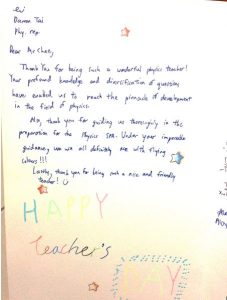 Damon Tai
Phy. rep
Dear Mr Chan,
Thank You for being such a wonderful physics teacher!
Your profound knowledge and diversification of question
have enabled us to reach the pinnacle of development
in the field of physics.
Also, thank you for guiding us thoroughly in the
preparation for the Physics SBA. Under your impeccable
guidance, we will all definitely with flying
colours!!!
Lastly, thank you for being such a nice and friendly
teacher!
HAPPY
teacher's
DAY